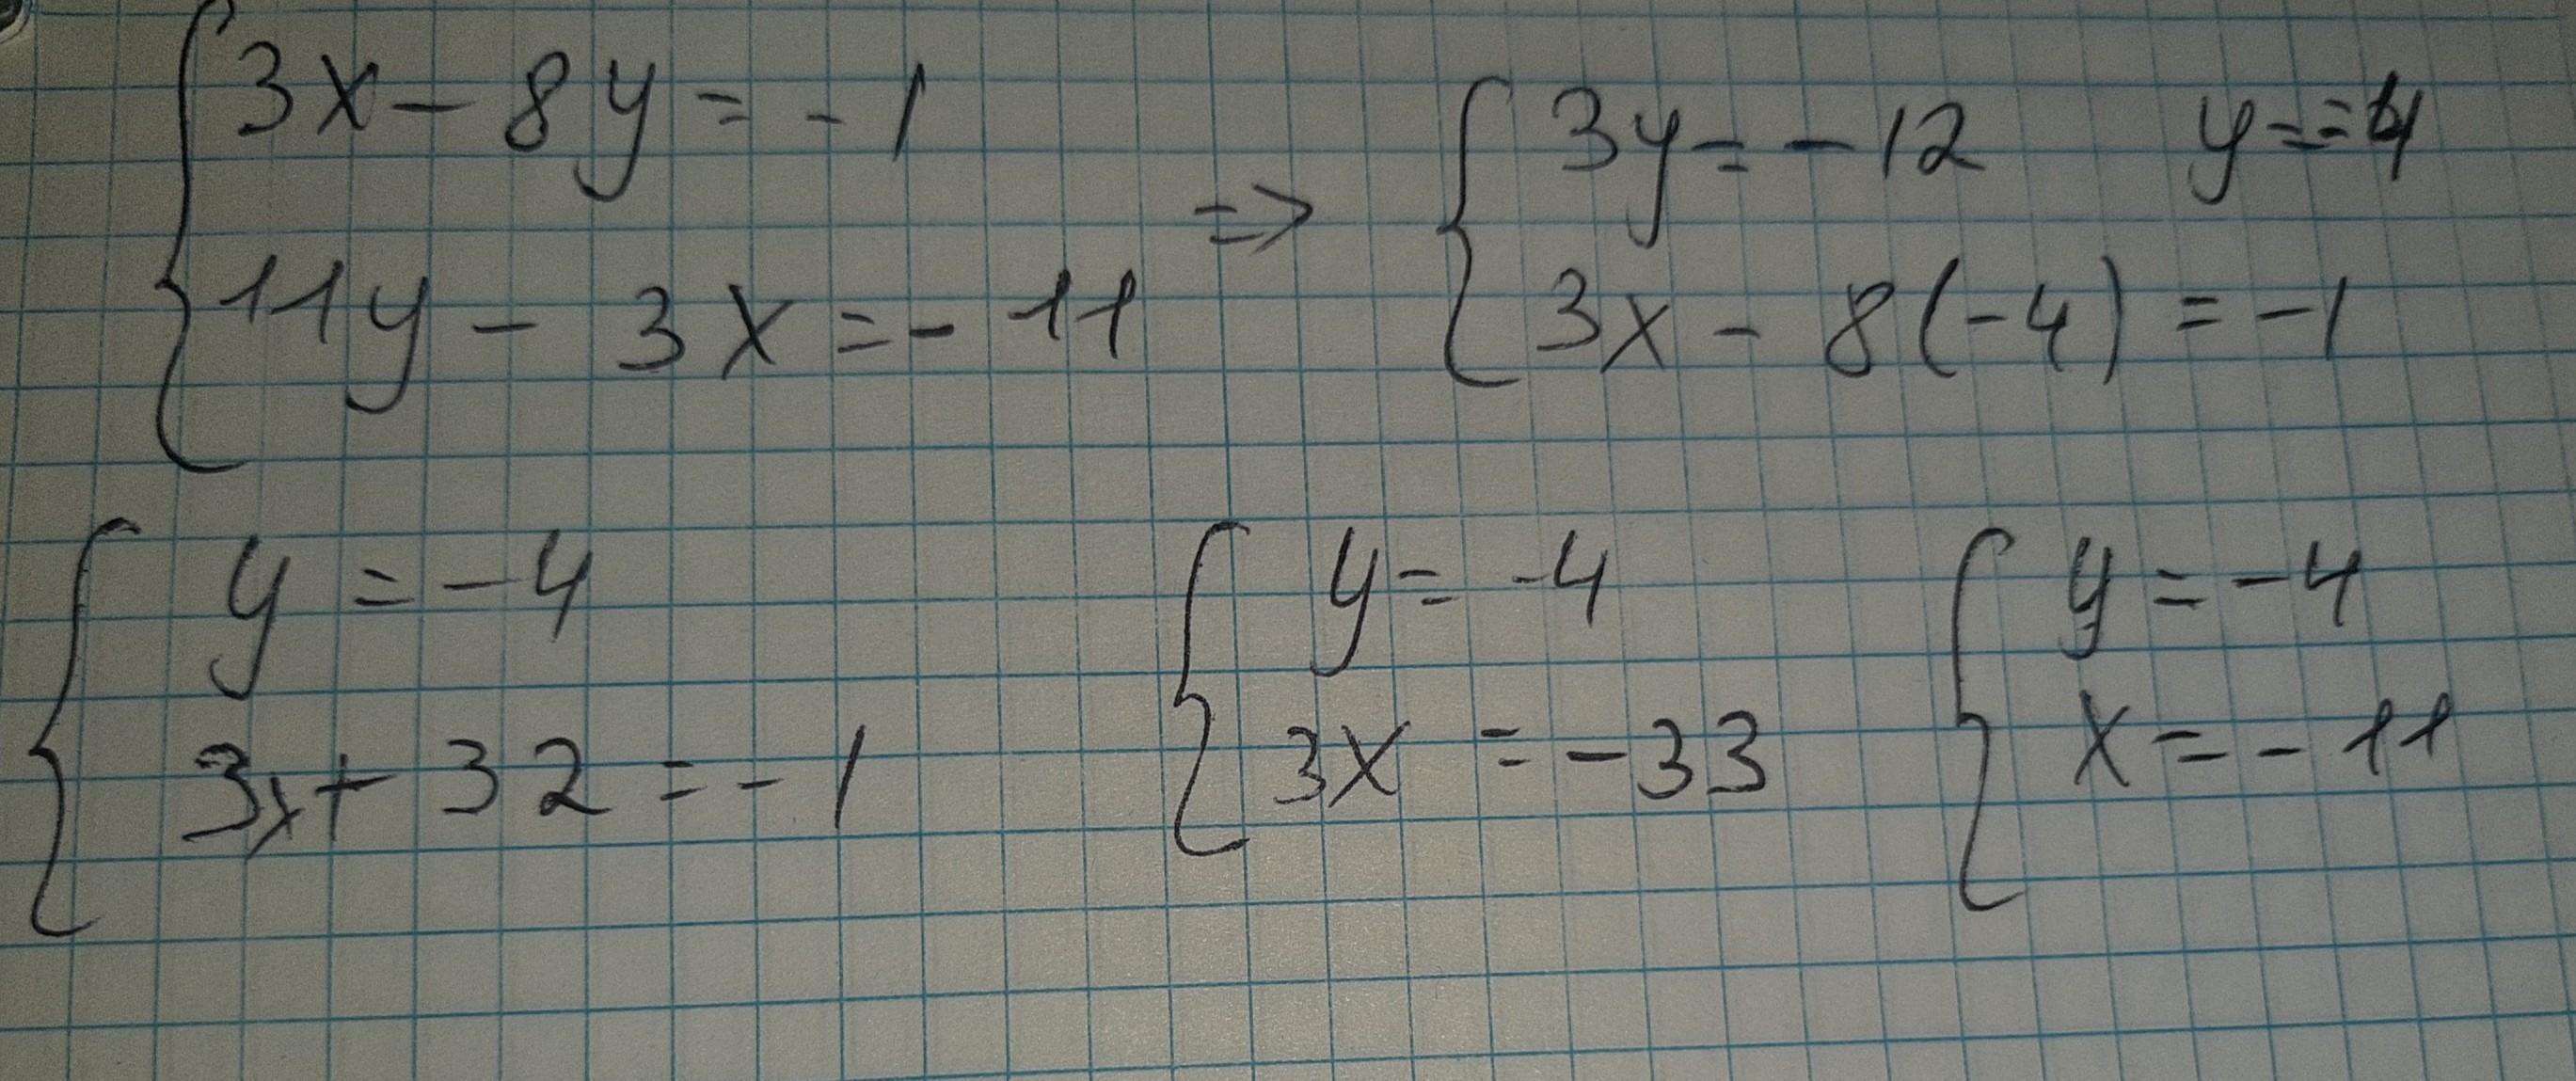 3x - 8y = -1
11y - 3x = -11
=>
3y = -12 y = -4
3x - 8(-4) = -1
y = -4
3x + 32 = -1
y = -4
3x = -33
y = -4
x = -11